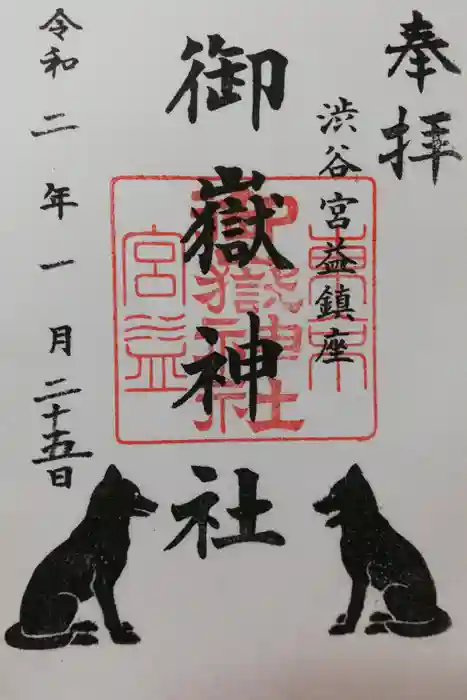 奉拝
渋谷宮益鎮座
御嶽神社
令和二年一月二十五日
東京
御嶽神社
宮益